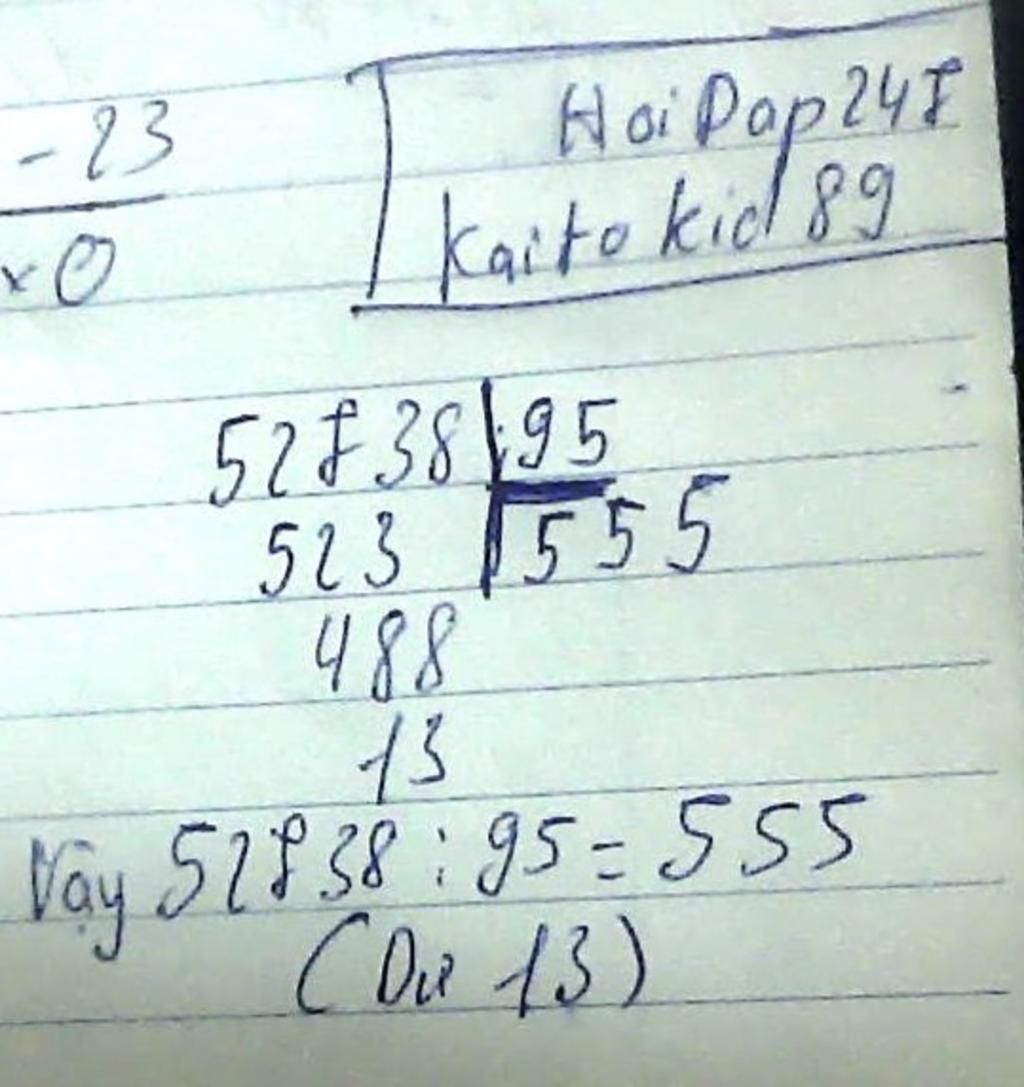 - 23
x 0
Hoi Dap 247
Kaito kid 89
52738 95
523 555
488
13
Vậy 52738 : 95 = 555
(Dư 13)